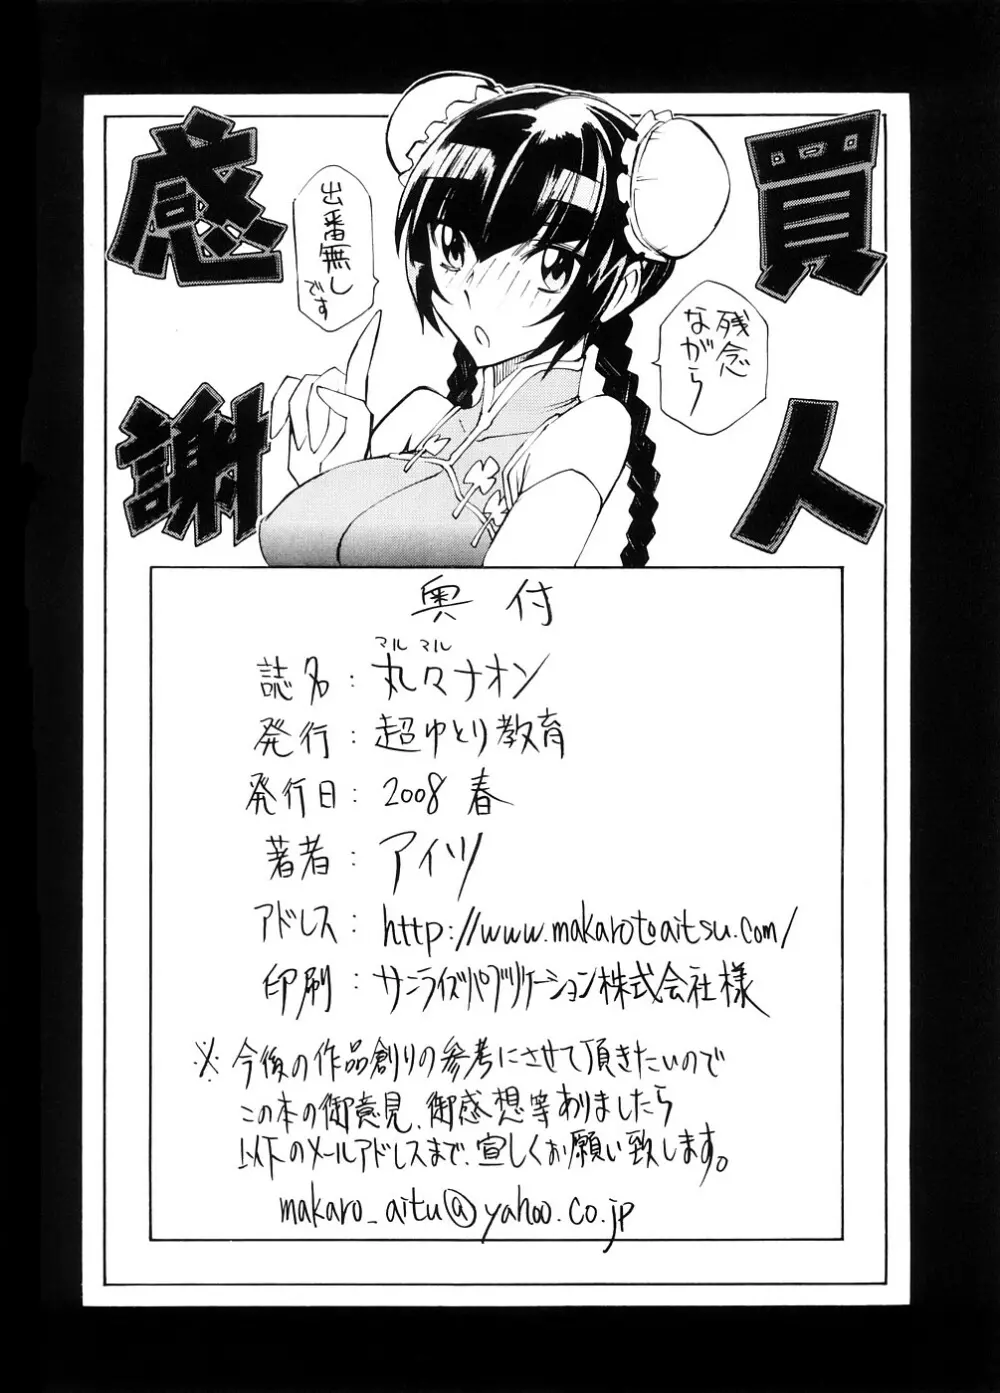 買人
感謝
残念
ながら
出番無し
です
奥付
マルマル
誌名:丸々ナオン
発行:超ゆとり教育
発行日:2008 春
著者:アイツ
アドレス:http://www.makarotoaitsu.com/
印刷:サンライズパブリケーション株式会社様
※今後の作品創りの参考にさせて頂きたいので
この本の御意見、御感想等ありましたら
以下のメールアドレスまで、宜しくお願い致します。
makaro_aitu@yahoo.co.jp